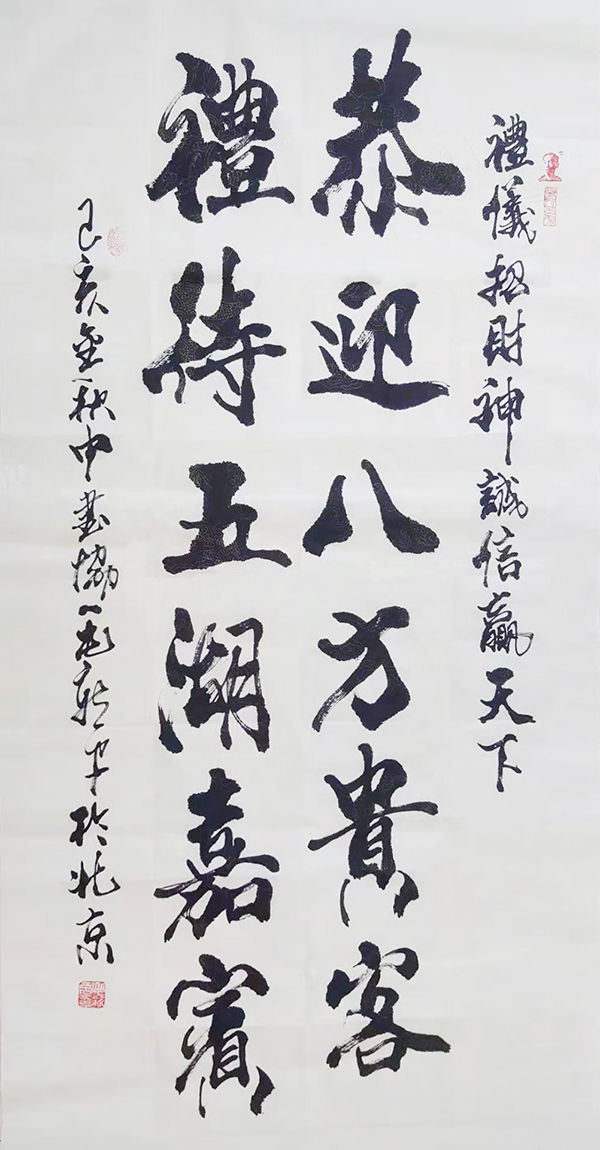 禮儀招財神誠信贏天下
恭迎八方貴客
禮待五湖嘉賓
己亥金秋中書協平於北京